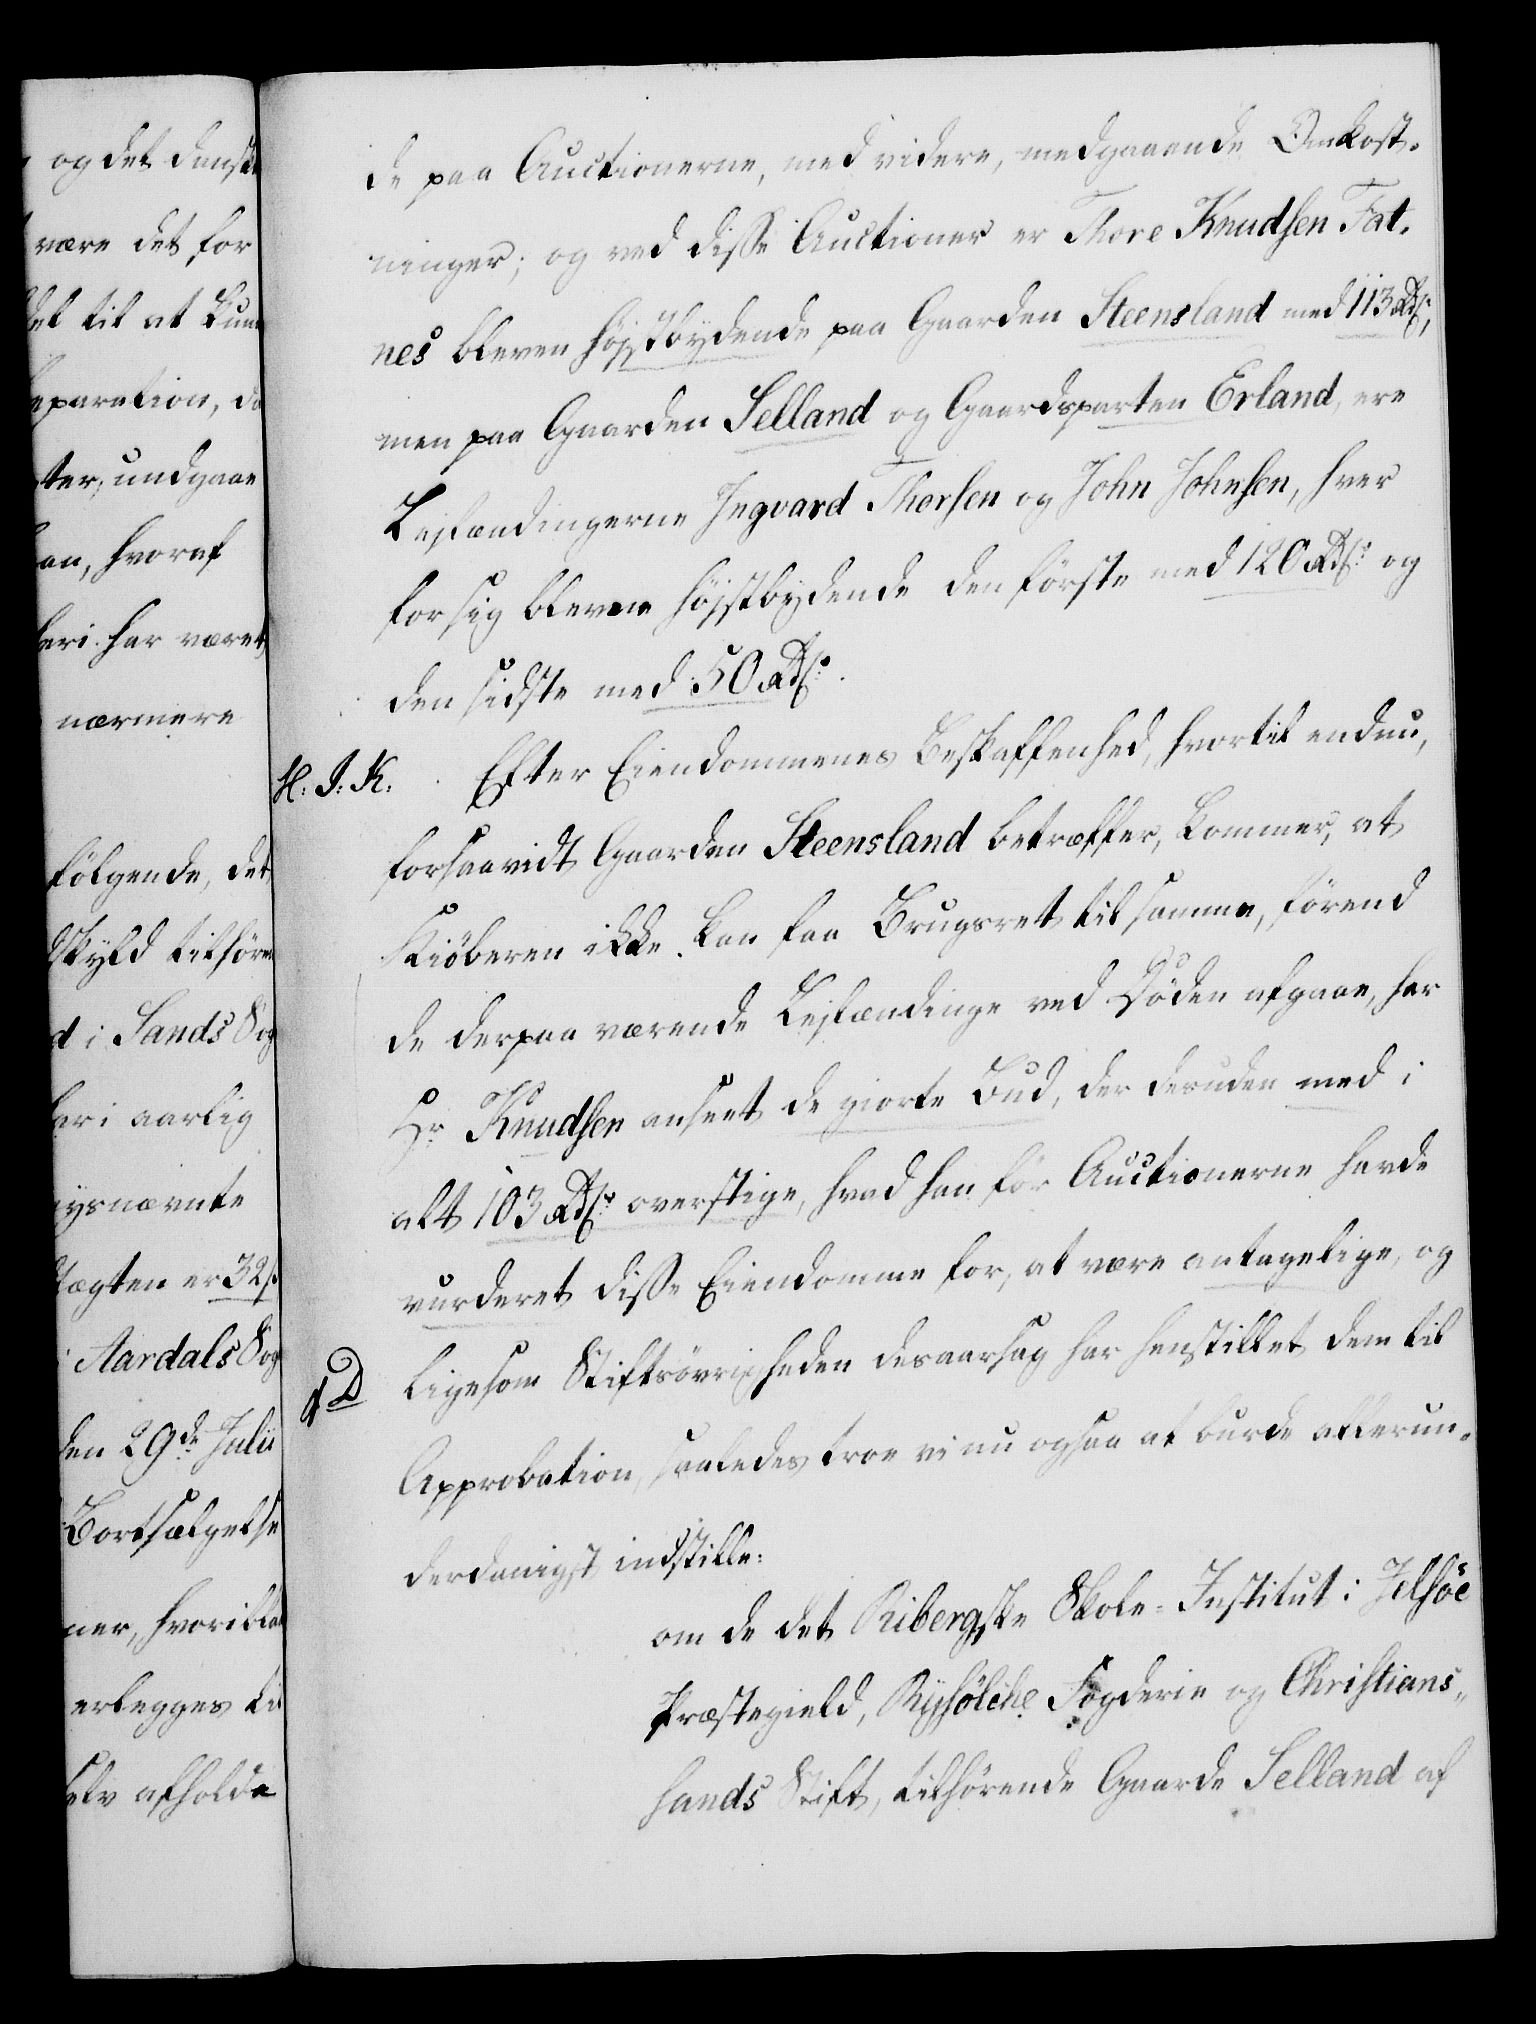 og det dansk
være det for
det til at kun
eparation, da
ter, undgaae
an, hvoraf
heri har været
nærmere
følgende, det
dskyld tilhøre
d i Sands Sog
her i aarlig
nysnævnte
tægten er 32 s.
i Aardals Sog
den 29de Julii
Bortsælgelse
ner, hvoriblan
erlegges til
selv afholde
de paa Auctionerne, med videre, medgaaende Omkost-
ninger; og ved disse Auctioner er Thore Knudsen Fat-
nes bleven højstbydende paa Gaarden Steensland med 113 Rdlr,
men paa Gaarden Selland og Gaardsparten Erland, ere
Lejlændingerne Ingvard Thorsen og John Johnsen, hver
for sig blevne højstbydende den første med 120 Rdlr. og
den sidste med 50 Rdlr.
H. I. K. Efter Eiendommenes Beskaffenhed, hvortil endnu,
forsaavidt Gaarden Steensland betræffer, kommer, at
Kiøberen ikke kan faa Brugsret til samme, førend
de derpaa værende Lejlændinge ved Døden afgaae, har
Hr. Knudsen anseet de giorte Bud, der desuden med i
alt 103 Rdlr. overstige, hvad han før Auctionerne havde
vurderet disse Eiendomme for, at være antagelige, og
ligesom Stiftsøvrigheden desaarsag har henstillet dem til
Approbation, saaledes troe vi nu ogsaa at burde allerun-
derdanigst indstille:
om de det Ribergske Skole-Institut i Jelsøe
Præstegield, Ryefølche Fogderie og Christians-
sands Stift, tilhørende Gaarde Selland af